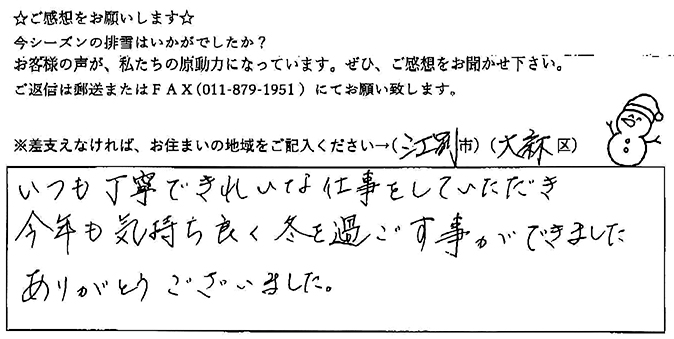 ☆ご感想をお願いします☆
今シーズンの排雪はいかがでしたか？
お客様の声が、私たちの原動力になっています。ぜひ、ご感想をお聞かせ下さい。
ご返信は郵送またはＦＡＸ(011-879-1951）にてお願い致します。
※差支えなければ、お住まいの地域をご記入ください→(江別市）(大麻区）
いつも丁寧できれいな仕事をしていただき
今年も気持ち良く冬を過ごす事ができました
ありがとうございました。